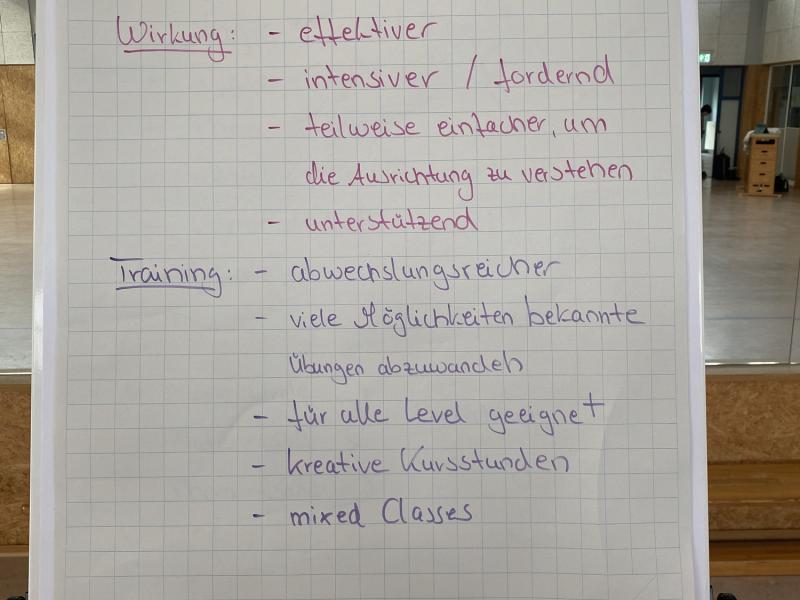 Wirkung: - effektiver
- intensiver / fordernd
- teilweise einfacher, um
die Ausrichtung zu verstehen
- unterstützend
Training: - abwechslungsreicher
- viele Möglichkeiten bekannte
Übungen abzuwandeln
- für alle Level geeignet
- kreative Kursstunden
- mixed Classes